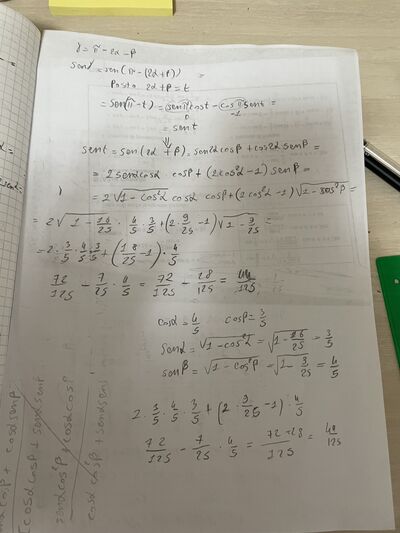 γ = π - 2α - β
senγ = sen(π - (2α + β)) =
Posto 2α + β = t
= sen(π - t) = senπ cost - cosπ sent =
0 -1
= sent
⇓
sent = sen(2α + β) = sen2α cosβ + cos2α senβ =
= 2 senα cosα cosβ + (2cos²α - 1) senβ =
= 2 √1 - cos²α cosα cosβ + (2cos²α - 1) √1 - cos²β =
= 2 √1 - 16/25 · 4/5 · 3/5 + (2 · 9/25 - 1) √1 - 9/25 =
= 2 · 3/5 · 4/5 · 3/5 + (18/25 - 1) · 4/5
72/125 - 7/25 · 4/5 = 72/125 - 28/125 = 44/125
cosα = 4/5 cosβ = 3/5
senα = √1 - cos²α = √1 - 16/25 = 3/5
senβ = √1 - cos²β = √1 - 9/25 = 4/5
2 · 3/5 · 4/5 · 3/5 + (2 · 9/25 - 1) · 4/5
72/125 - 7/25 · 4/5 = 72 - 28/125 = 44/125
cosα cosβ + senα senβ
senα cosβ + cosα cosβ
cosα cosβ + senα senβ